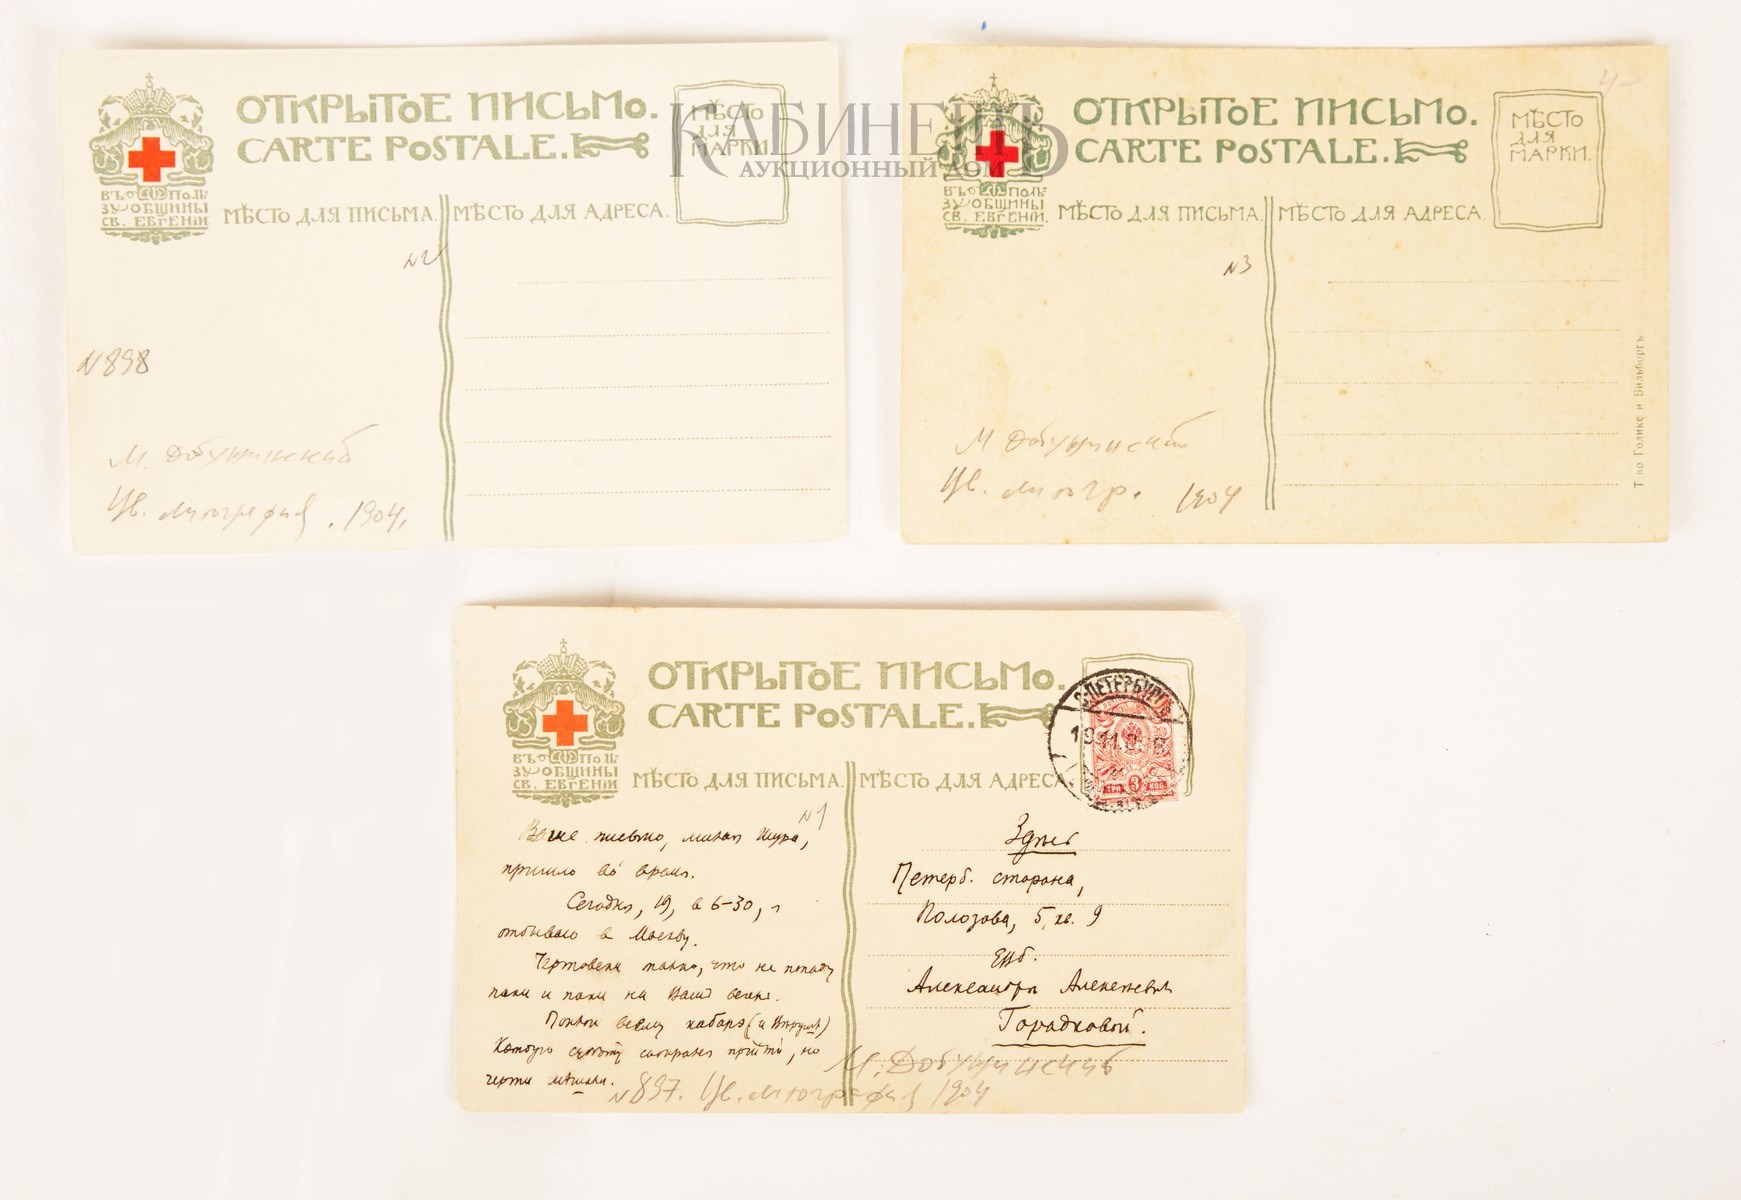 ОТКРЫТОЕ ПИСЬМО.
CARTE POSTALE.
МѢСТО
ДЛЯ
МАРКИ.
ВЪ ПОЛЬ
ЗУ ОБЩИНЫ
СВ. ЕВГЕНIИ
МѢСТО ДЛЯ ПИСЬМА.
МѢСТО ДЛЯ АДРЕСА.
N2
N898
М. Добужинский
Цв. литография. 1904.
КАБИНЕТЪ
АУКЦИОННЫЙ ДОМ
ОТКРЫТОЕ ПИСЬМО.
CARTE POSTALE.
МѢСТО
ДЛЯ
МАРКИ.
ВЪ ПОЛЬ
ЗУ ОБЩИНЫ
СВ. ЕВГЕНIИ.
МѢСТО ДЛЯ ПИСЬМА.
МѢСТО ДЛЯ АДРЕСА.
4-
N3
М Добужинский
Цв. литогр. 1904
Т-во Голике и Вильборгъ
ОТКРЫТОЕ ПИСЬМО.
CARTE POSTALE.
С-ПЕТЕРБУРГЪ
19 11
ТРИ 3 КОП.
ВЪ ПОЛЬ
ЗУ ОБЩИНЫ
СВ. ЕВГЕНIИ
МѢСТО ДЛЯ ПИСЬМА.
МѢСТО ДЛЯ АДРЕСА
N1
Ваше письмо, милая Шура,
пришло во время.
Сегодня, 19, в 6-30, я
отбываю в Москву.
Чертовски жалко, что не попаду
паки и паки на Ваш
всему кабарэ (и
прийти, но
черти мѣшали.
Здѣсь
Петерб. сторона,
Полозова, 5, кв. 9
ЕВб.
Александрѣ Алексѣевнѣ
Городковой.
М. Добужинский
N897. Цв. литография 1904